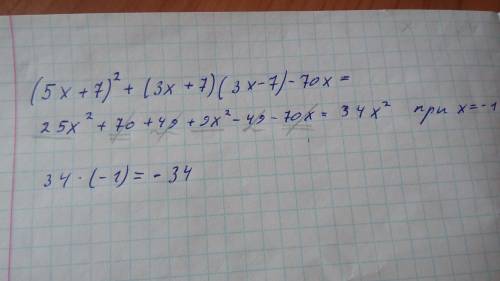 (5x+7)² + (3x+7)(3x-7)-70x =
25x² + 70 + 49 + 9x² - 49 - 70x = 34x² при x=-1
34 · (-1) = - 34